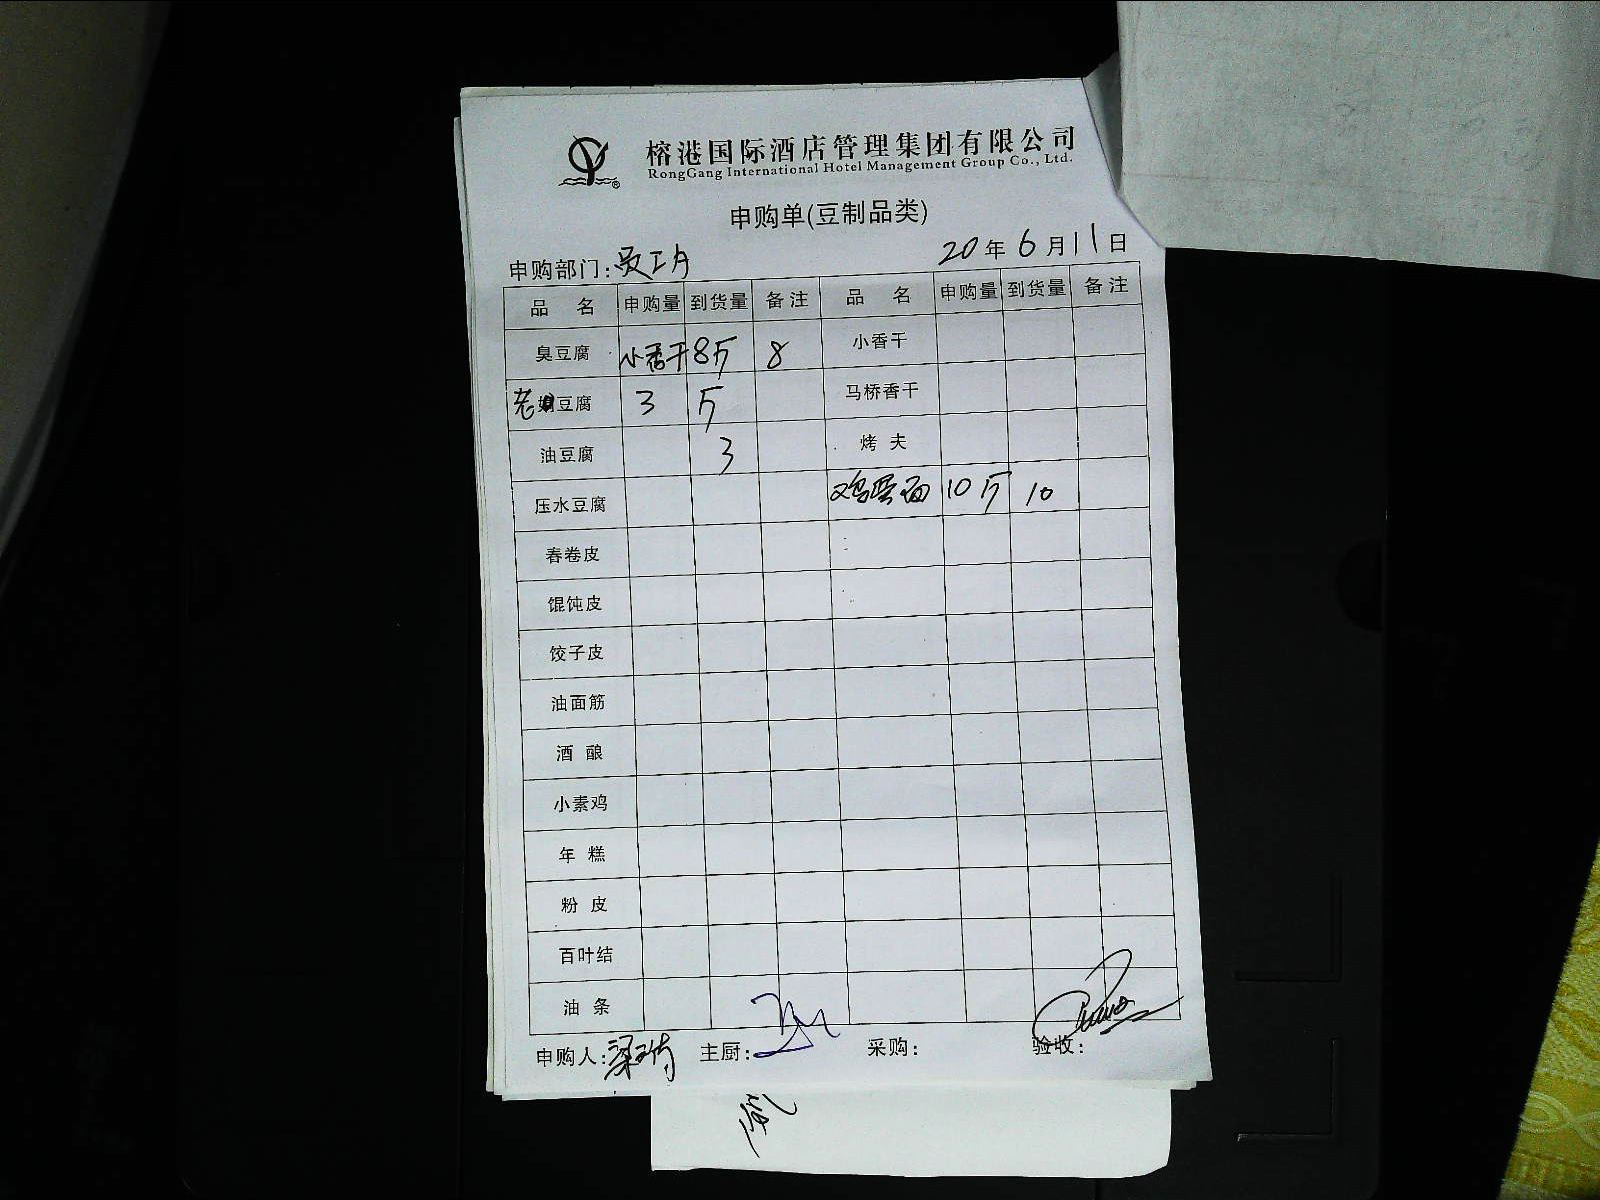 榕港国际酒店管理集团有限公司
RongGang International Hotel Management Group Co., Ltd.
申购单(豆制品类)
申购部门: 20年6月11日
品 名 申购量 到货量 备注 品 名 申购量 到货量 备注
臭豆腐 小香干 8斤 8 小香干
老 豆腐 3 斤 马桥香干
油豆腐 3 烤 夫
压水豆腐 鸡蛋面 10斤 10
春卷皮
馄饨皮
饺子皮
油面筋
酒 酿
小素鸡
年 糕
粉 皮
百叶结
油 条
申购人: 主厨: 采购: 验收: